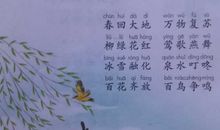 chūn huí dà dì  wàn wù fù sū
春回大地  万物复苏
liǔ lǜ huā hóng  yīng gē yàn wǔ
柳绿花红  莺歌燕舞
bīng xuě róng huà  quán shuǐ dīng dōng
冰雪融化  泉水叮咚
bǎi huā qí fàng  bǎi niǎo zhēng míng
百花齐放  百鸟争鸣